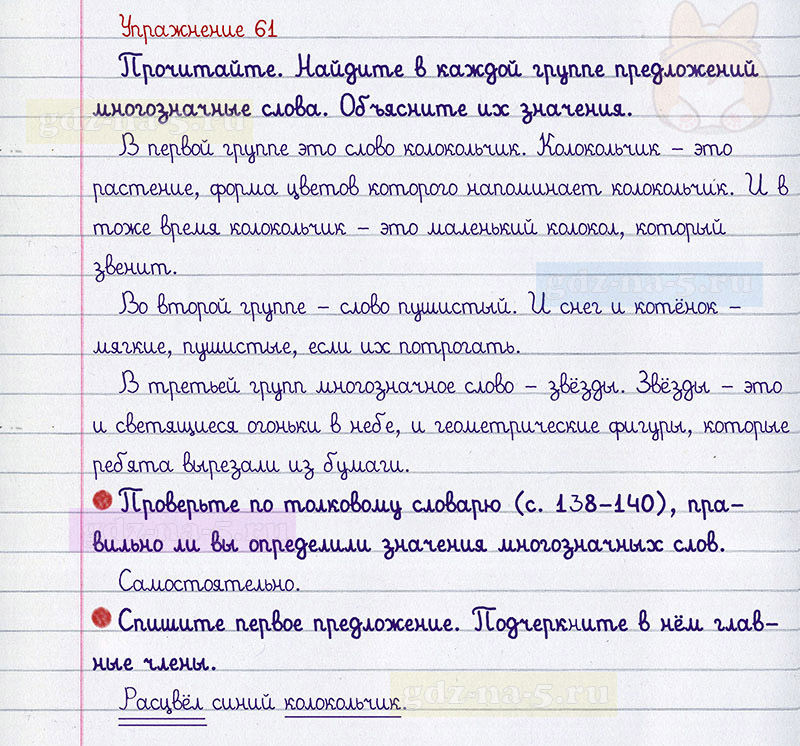 Упражнение 61
Прочитайте. Найдите в каждой группе предложений
многозначные слова. Объясните их значения.
gdz-na-5.ru
В первой группе это слово колокольчик. Колокольчик – это
растение, форма цветов которого напоминает колокольчик. И в
тоже время колокольчик – это маленький колокол, который
звенит.
gdz-na-5.ru
Во второй группе – слово пушистый. И снег и котёнок –
мягкие, пушистые, если их потрогать.
В третьей групп многозначное слово – звёзды. Звёзды – это
и светящиеся огоньки в небе, и геометрические фигуры, которые
ребята вырезали из бумаги.
Проверьте по толковому словарю (с. 138–140), пра-
gdz-na-5.ru
вильно ли вы определили значения многозначных слов.
Самостоятельно.
Спишите первое предложение. Подчеркните в нём глав-
ные члены.
Расцвёл синий колокольчик.
gdz-na-5.ru